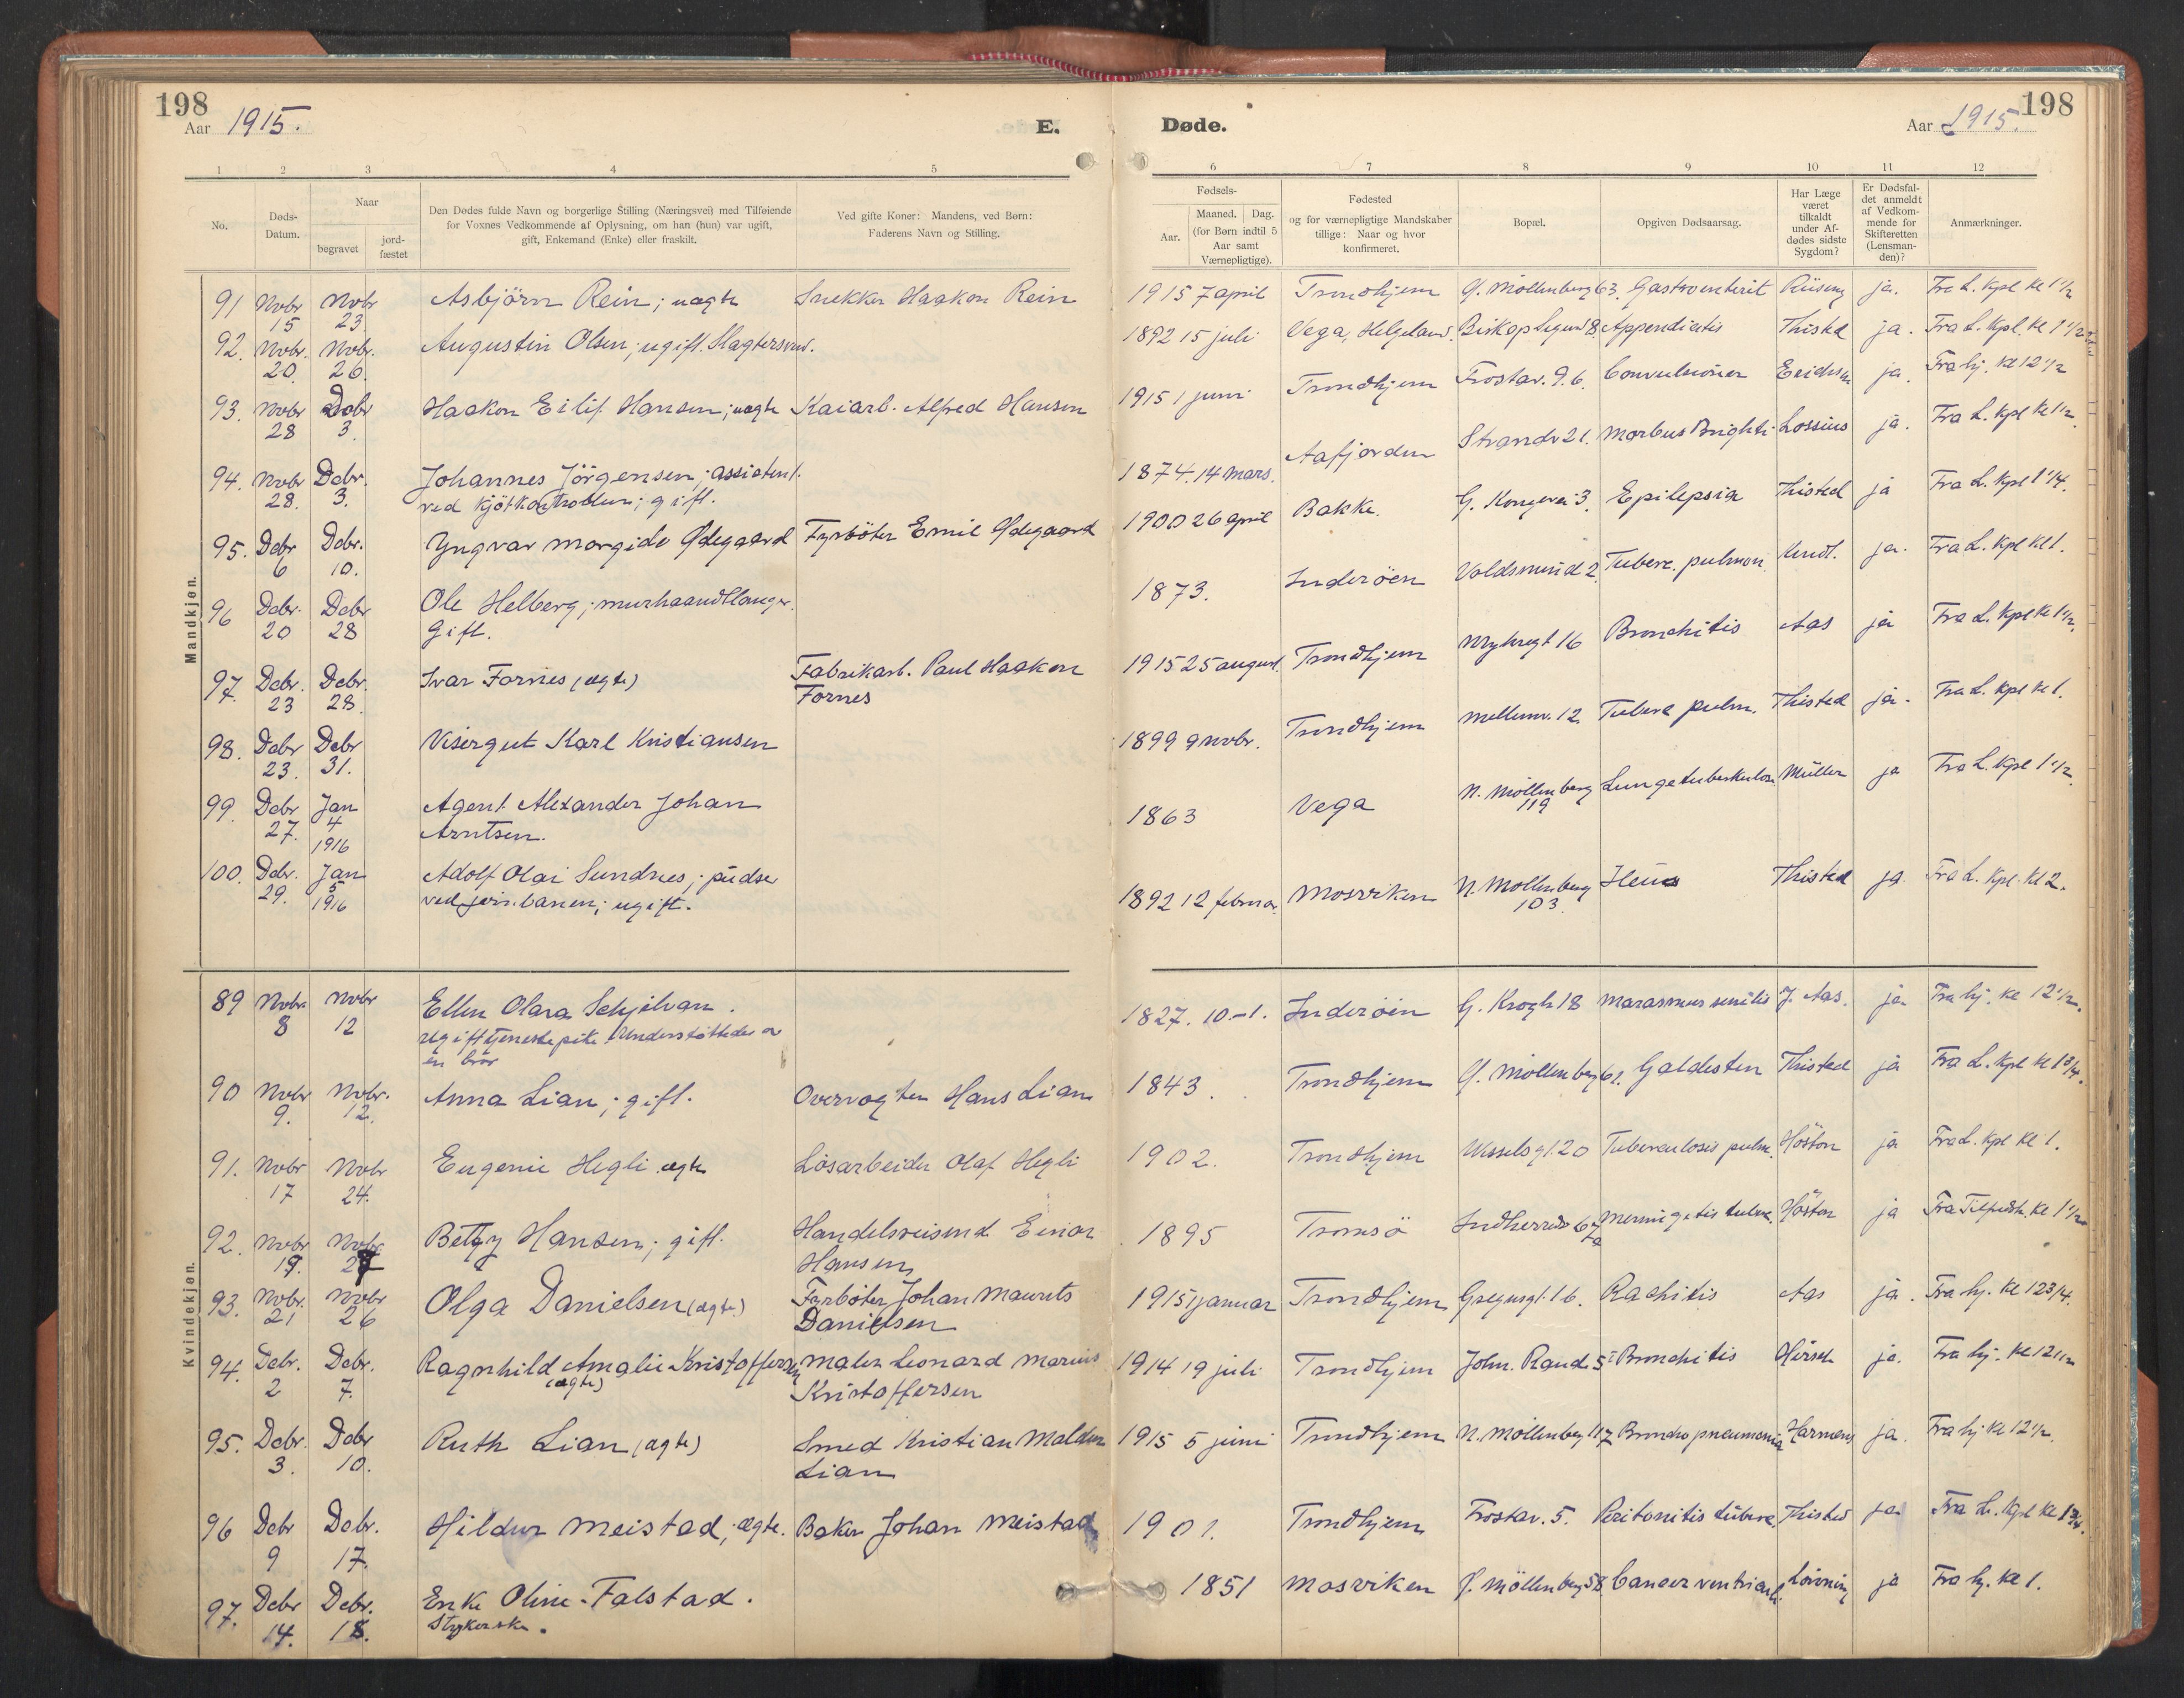 198
Aar 1915.
E.
1 2 3 4 5
No.
Døds-
Datum.
Naar
begravet
jord-
fæstet
Den Dødes fulde Navn og borgerlige Stilling (Næringsvei) med Tilføiende
for Voxnes Vedkommende af Oplysning, om han (hun) var ugift,
gift, Enkemand (Enke) eller fraskilt.
Ved gifte Koner: Mandens, ved Børn:
Faderens Navn og Stilling.
Mandkjøn.
91 Novbr Novbr Asbjörn Rein; uægte Snekker Haakon Rein
15 23
92. Novbr. Novbr. Augustin Olsen; ugift. Slagtersvend.
20. 26.
93. Novbr Debr Haakon Eilif Hansen; uægte Kaiarb. Alfred Hansen
28 3.
94. Novbr Debr. Johannes Jörgensen; assistent
28. 3. ved Kjötkontrollen; gift.
95. Debr Debr. Yngvar Morgido Ødegaard Fyrböter Emil Ødegaard
6 10.
96 Debr. Debr Ole Helberg; murhaandtlanger.
20 28 Gift.
97. Debr. Debr. Ivar Fornes (ægte) Fabrikarb. Paul Haakon
23 28. Fornes
98. Debr Debr Visergut Karl Kristiansen
23. 31.
99. Debr Jan Agent Alexander Johan
27. 4 Arntsen.
1916
100. Debr. Jan Adolf Olai Sundnes; pudser
29. 5 ved jernbanen; ugift.
1916
Kvindekjøn.
89 Novbr Novbr Ellen Olava Schjelvan.
8 12 Ugift tjenestepike. Understöttedes av
en bror
90 Novbr Novbr. Anna Lian; gift. Overvogter Hans Lian
9. 12.
91. Novbr Novbr Eugenie Hegli ægte Lösarbeider Olaf Hegli
17 24.
92. Novbr Novbr Betzy Hansen; gift. Handelsreisend Einar
19. 27 Hansen
93. Novbr. Novbr Olga Danielsen (ægte) Fyrböter Johan Maurits
21 26 Danielsen
94. Debr. Debr. Ragnhild Amalie Kristoffersen Maler Leonard Marius
2 7. (ægte) Kristoffersen
95. Debr. Debr Ruth Lian (ægte) Smed Kristian Malden
3. 10. Lian
96 Debr Debr. Hildur Meistad; ægte. Baker Johan Meistad
9 17.
97. Debr Debr. Enke Oline Falstad.
14. 18. Strykerske.
Døde.
Aar 1915.
198
6 7 8 9 10 11 12
Fødsels-
Aar.
Maaned. Dag.
(for Børn indtil 5
Aar samt
Værnepligtige).
Fødested
og for værnepligtige Mandskaber
tillige: Naar og hvor
konfirmeret.
Bopæl.
Opgiven Dødsaarsag.
Har Læge
været
tilkaldt
under Af-
dødes sidste
Sygdom?
Er Dødsfal-
det anmeldt
af Vedkom-
mende for
Skifteretten
(Lensman-
den)?
Anmærkninger.
1915 7 april Trondhjem G. Möllenberg 63. Gastroenterit Riiseng ja. Fra L. Kpl Kl 1 1/2
1892 15 juli Vega, Helgeland. Biskop Sigurd 8. Appendicitis Thisted ja. Fra L. Kpl. Kl 1 1/2
1915 1 juni Trondhjem Frostav. 9.b. Convulsioner Erichsen ja. Fra hj. Kl 12 1/2
1874. 14 mars. Aafjorden Strandv 21. Morbus Brighti Lossius ja. Fra L. Kpl Kl 1 1/2.
1900 26 april Bakke. G. Kongevei 3. Epilepsia Thisted ja Fra L. Kpl 1 1/4.
1873. Inderöen Voldsmind 2. Tuberc. pulmon. ja. Fra L. Kpl Kl 1.
1915 25 august. Trondhjem Nybrogt 16 Bronchitis Aas ja Fra L. Kpl Kl 1 1/2.
1899 9 novbr. Trondhjem Mellemv. 12 Tuberc pulm. Thisted ja. Fra L. Kpl Kl 1.
1863 Vega N. Möllenberg Lungetuberkulose Müller ja Fra L. Kpl 1 1/2
119
1892 12 februar. Mosviken N. Möllenberg Ileus Thisted ja Fra L. Kpl. Kl 2.
103.
1827. 10.-1. Inderöen G. Krogh 18 Marasmus senilis J. Aas. ja Fra hj. Kl 12 1/2.
1843. Trondhjem G. Möllenberg 61. Galdesten Thisted ja Fra L. Kpl Kl 1 3/4.
1902. Trondhjem Wesselsgt. 20 Tuberculosis pulm. Höston ja Fra L. Kpl Kl 1.
1895 Tromsö Indherredsv 62a Meningitis tuberc. Höston ja Kl 1 1/2
1915 1 januar Trondhjem Gregusgt. 16. Rachitis Aas ja. Fra hj. Kl 12 3/4.
1914 19 juli Trondhjem John. Rands 5 Bronchitis Hirsch ja. Fra hj. Kl 12 1/2
1915 5 juni Trondhjem N. Möllenberg 117 Bronchopneumonia Harmens ja. Fra hj Kl 12 1/2.
1901. Trondhjem Frostav. 5. Peritonitis tuberc. Thisted ja Fra L. Kpl Kl 1 3/4.
1851 Mosviken Ö. Möllenberg 58. Cancer ventriculi. ja Fra hj. Kl 1.